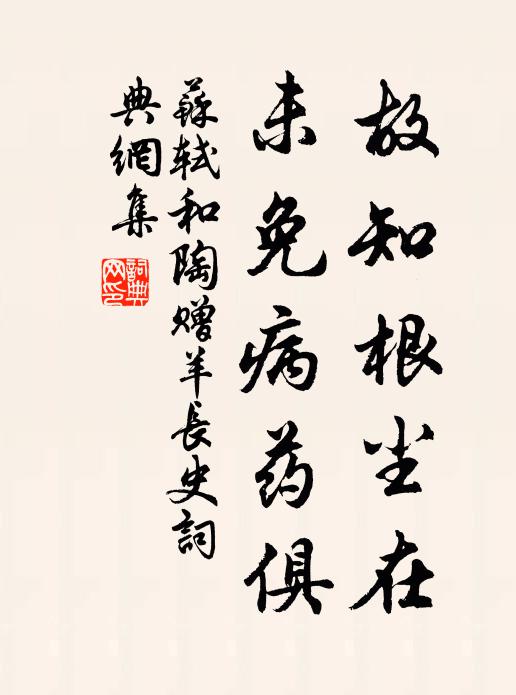 故知根尘在
未免病药俱
蘇轼和陶赠羊長史詞
典網集
詞典
网印